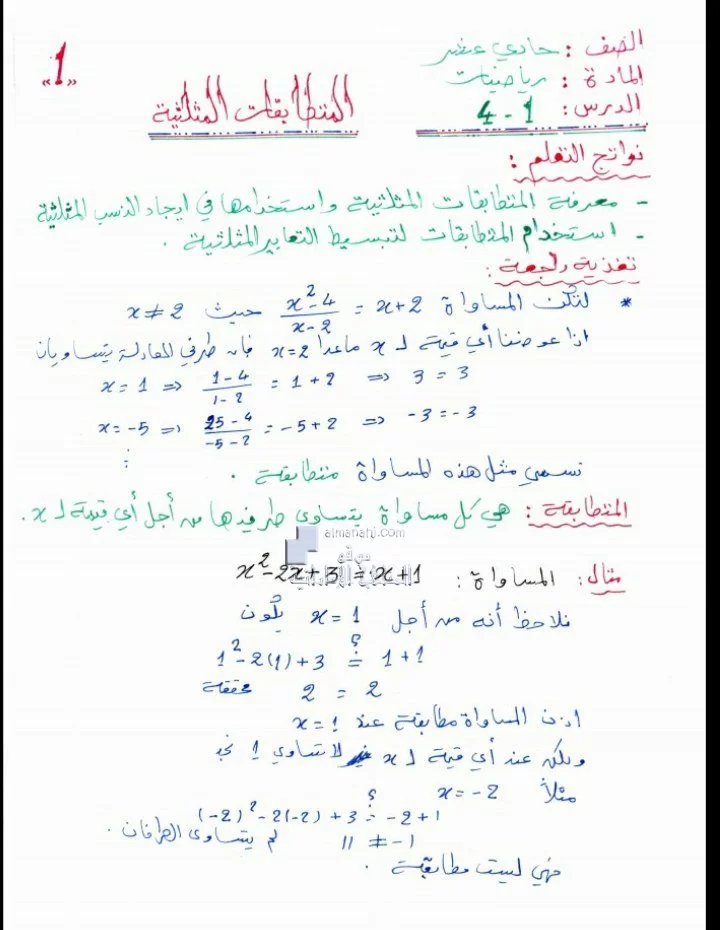 الصف : حادي عشر
المادة : رياضيات
الدرس : 1 - 4
«1»
المتطابقات المثلثية
نواتج التعلم :
- معرفة المتطابقات المثلثية واستخدامها في ايجاد النسب المثلثية
- استخدام المتطابقات لتبسيط التعابير المثلثية .
تغذية راجعة :
* لتكن المساواة (x²-4)/(x-2) = x+2 حيث x ≠ 2
اذا عوضنا أي قيمة لـ x ماعدا x=2 فإن طرفي المعادلة يتساويان
x = 1 ⇒ (1-4)/(1-2) = 1+2 ⇒ 3 = 3
x = -5 ⇒ (25-4)/(-5-2) = -5+2 ⇒ -3 = -3
⋮
نسمي مثل هذه المساواة متطابقة .
المتطابقة : هي كل مساواة يتساوى طرفيها من أجل أي قيمة لـ x .
almanahj.com
موقع
المناهج الإماراتية
مثال : المساواة : x²-2x+3 = x+1
نلاحظ أنه من أجل x = 1 يكون
1²-2(1)+3 ≟ 1+1
2 = 2 محققة
اذن المساواة مطابقة عند x = 1
ولكن عند أي قيمة لـ x لا تساوي 1 نجد
مثلاً x = -2
(-2)²-2(-2)+3 ≟ -2+1
11 ≠ -1 لم يتساوى الطرفان .
فهي ليست مطابقة .